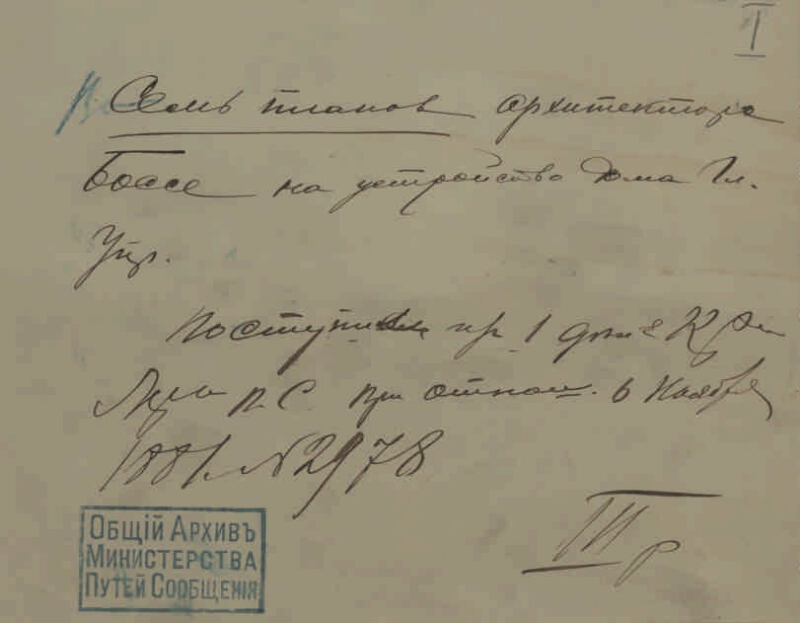 I
Семь планов архитектора
Боссе на устройство Дома Гл.
Упр.
Поступили
П. С. при отнош. 6 Ноября
1881. № 2978
III р
ОБЩІЙ АРХИВЪ
МИНИСТЕРСТВА
ПУТЕЙ СООБЩЕНІЯ